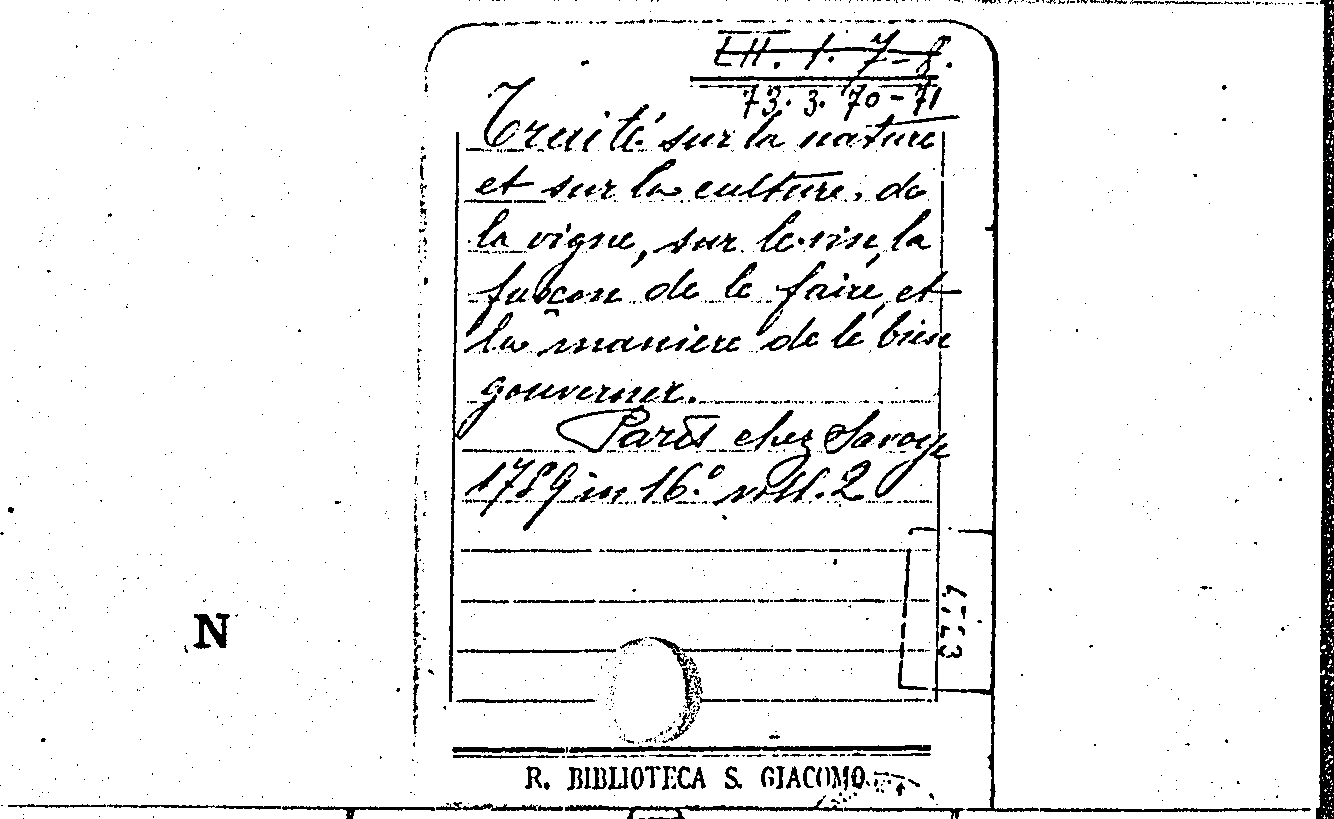 LII. 1. 7-8.
73. 3. 70-71
Traité sur la nature
et sur la culture de
la vigne, sur le vin, la
façon de le faire, et
la maniere de le bien
gouverner.
Paris chez Savoye
1759 in 16.° voll. 2
N
R. BIBLIOTECA S. GIACOMO